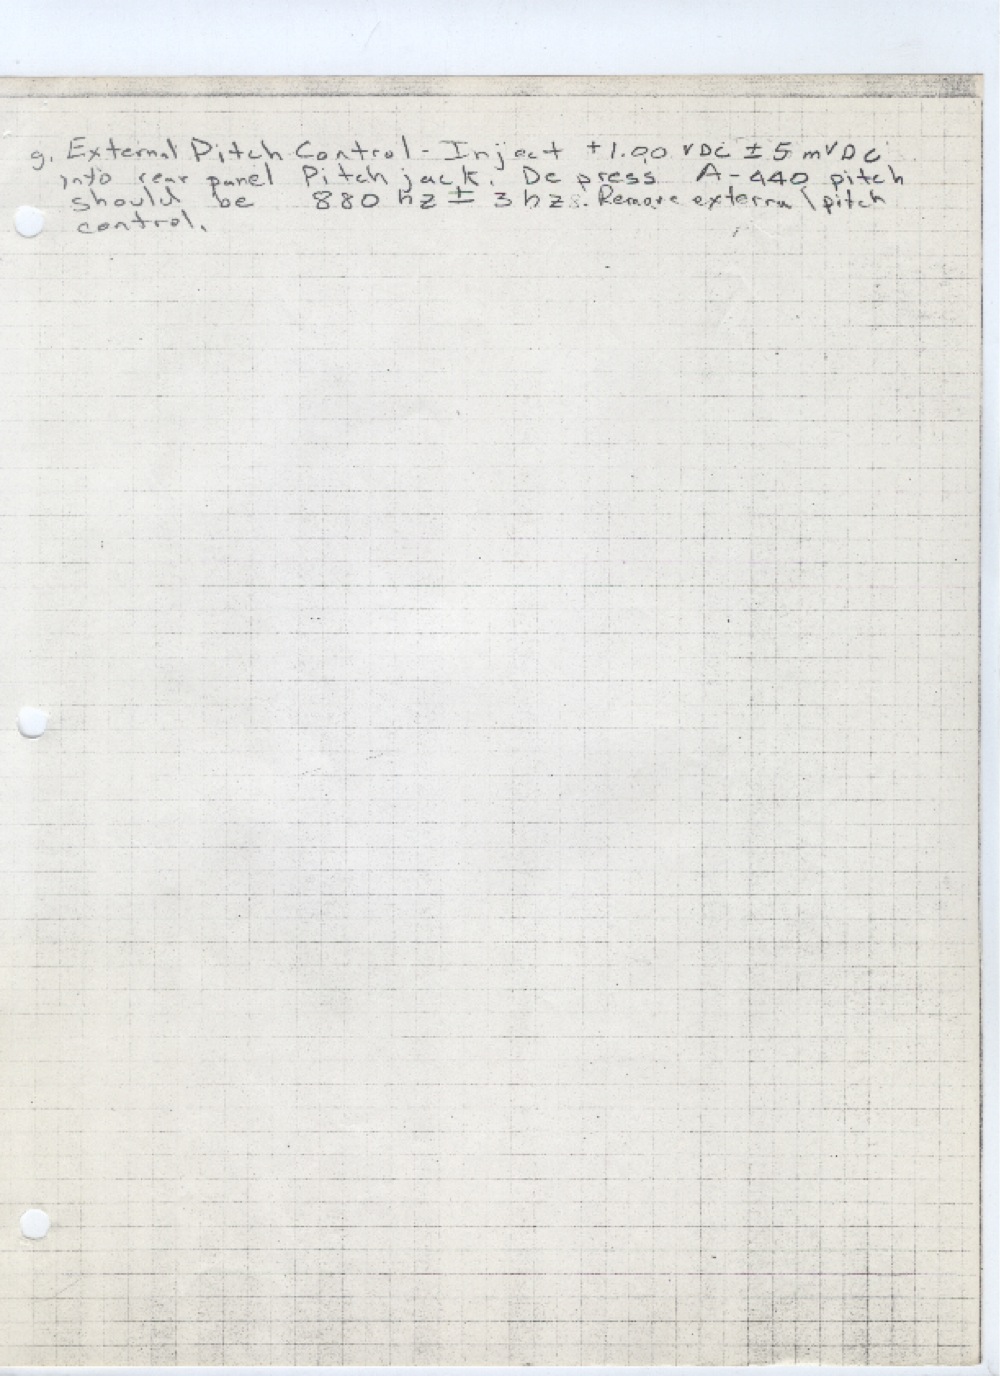 g. External Pitch Control - Inject +1.00 VDC ± 5 mVDC
into rear panel Pitch jack. Depress A-440 pitch
should be 880 hz ± 3 hz. Remove external pitch
control.